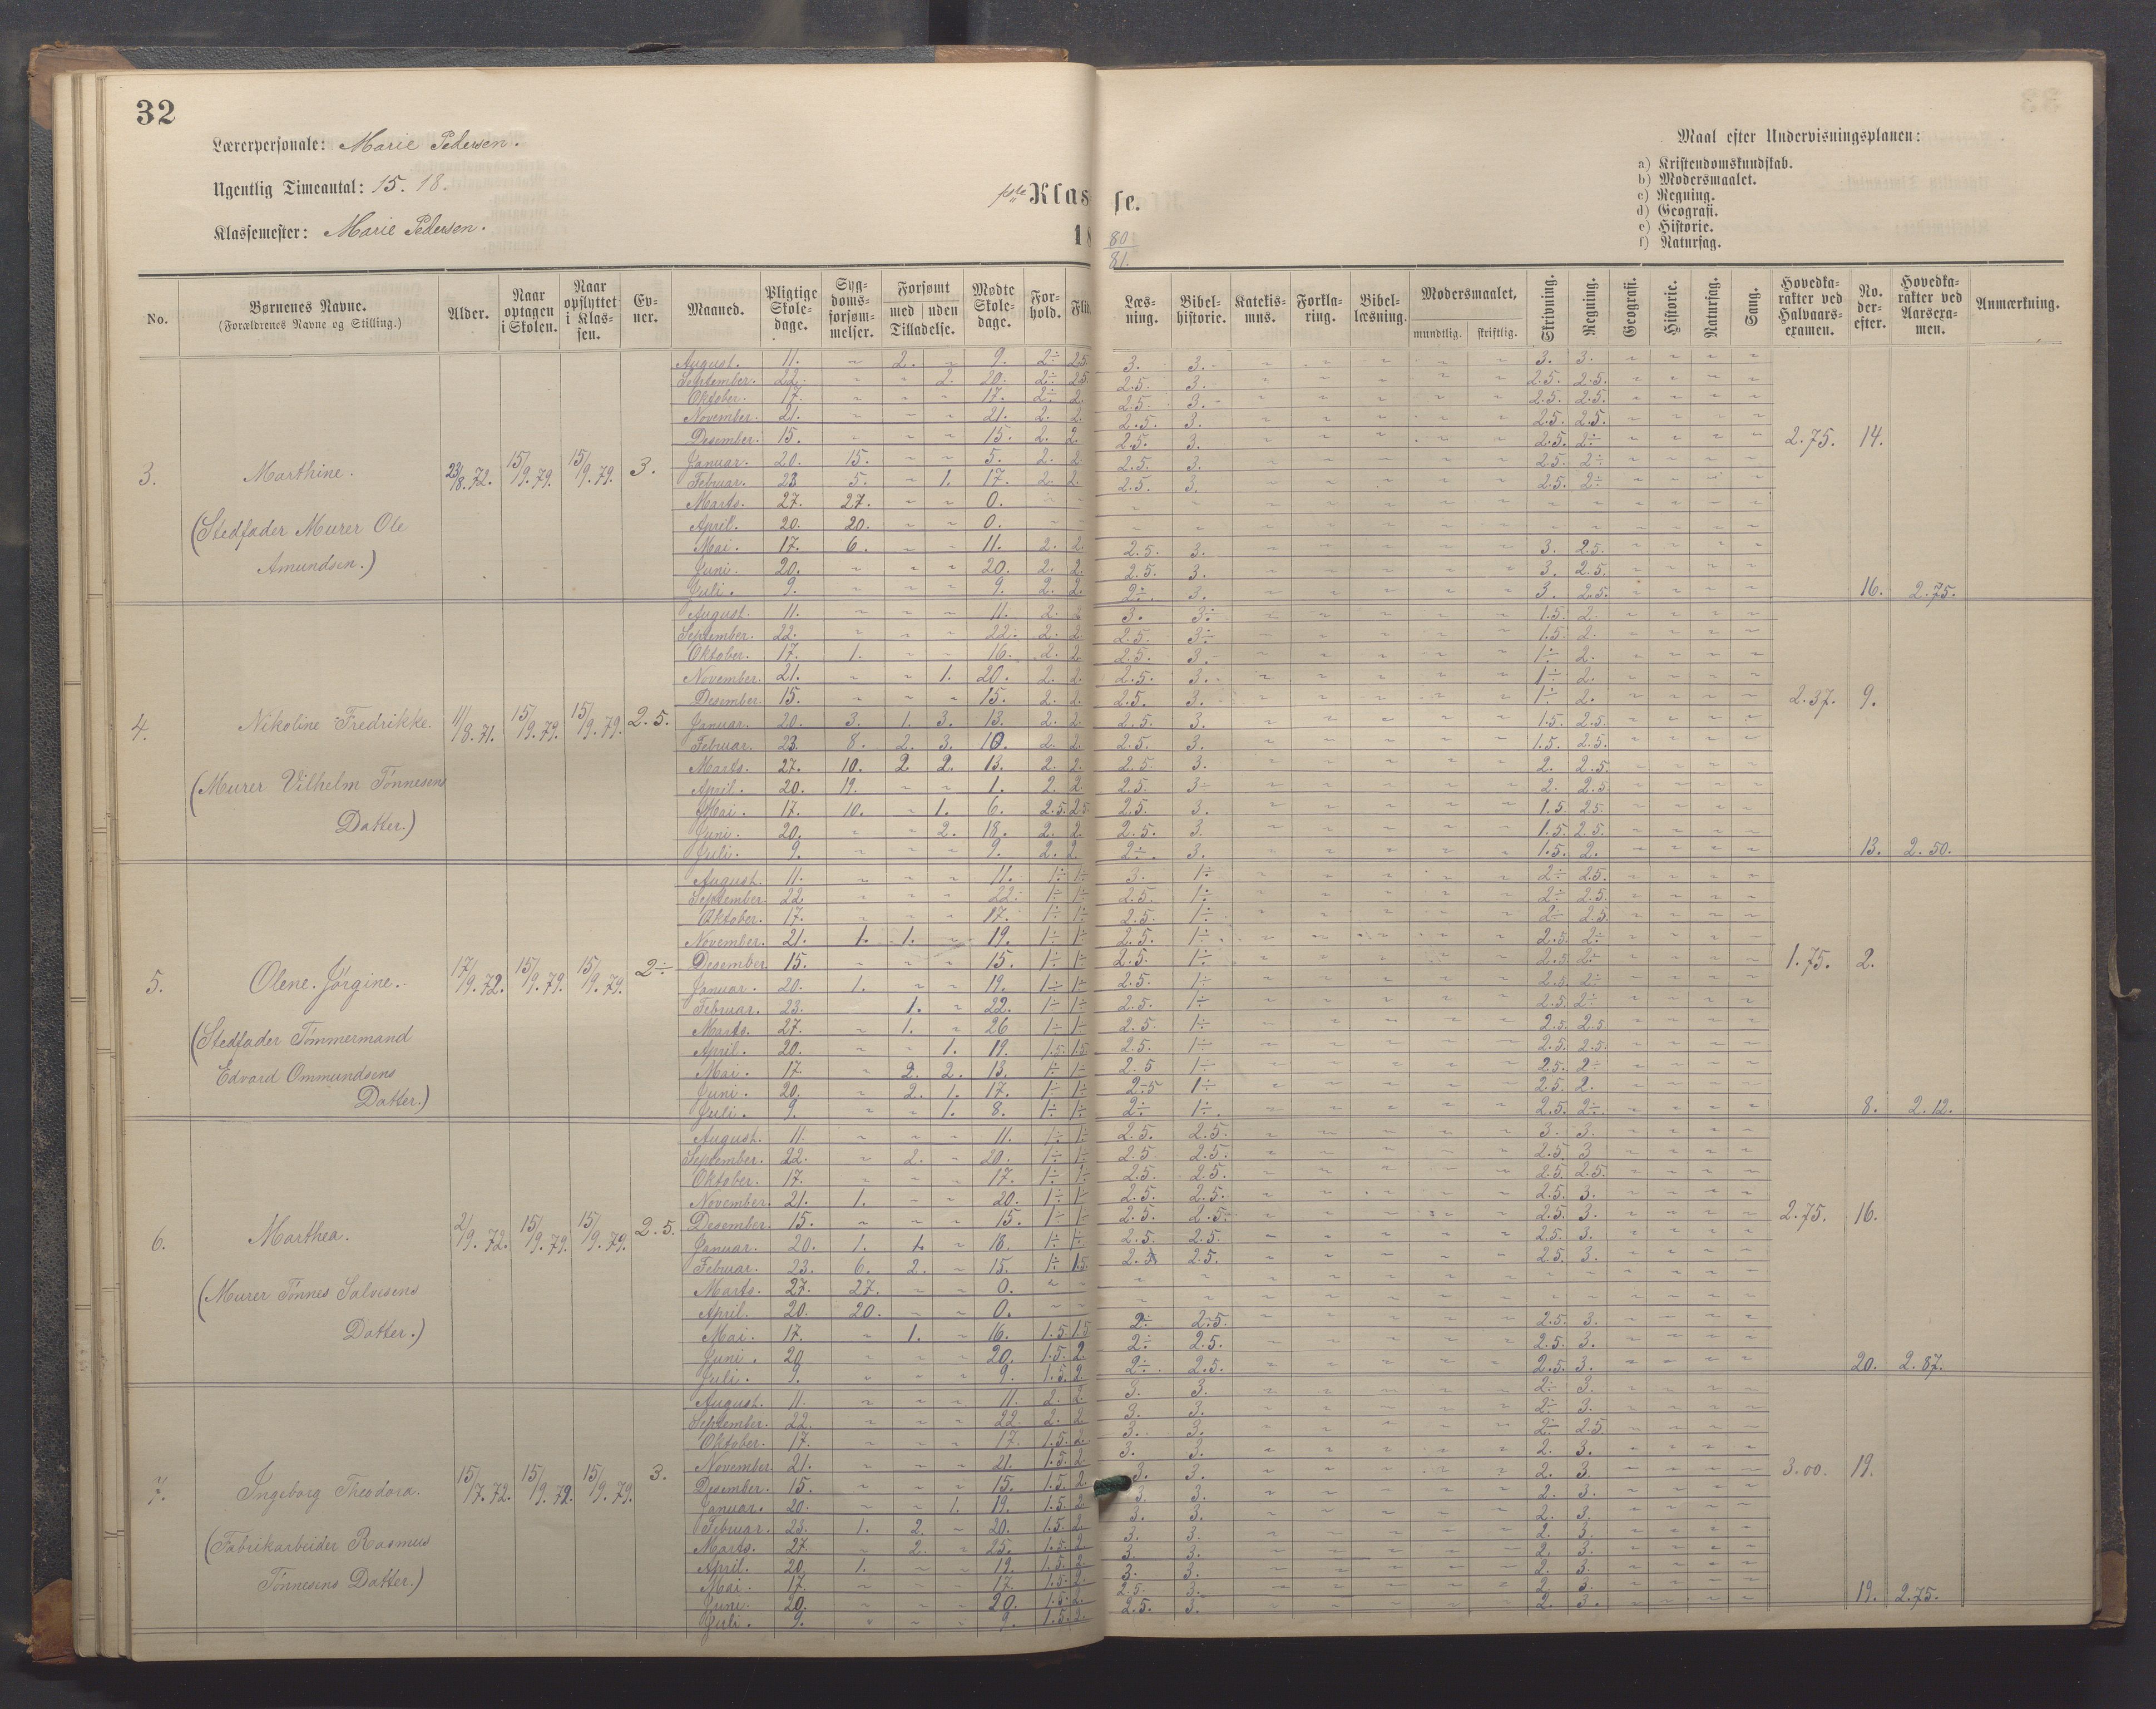 32
Lærerpersonale: Marie Pedersen.
Ugentlig Timeantal: 15. 18.
Klassemester: Marie Pedersen.
Klasse.
18 80/81.
Maal efter Undervisningsplanen:
a) Kristendomskundskab.
b) Modersmaalet.
c) Regning.
d) Geografi.
e) Historie.
f) Naturfag.
No. Børnenes Navne. (Forældrenes Navne og Stilling.) Alder. Naar optagen i Skolen. Naar opflyttet i Klassen. Evner. Maaned. Pligtige Skoledage. Sygdomsforsømmelser. Forsømt med uden Tilladelse. Mødte Skoledage. Forhold. Flid. Læsning. Bibelhistorie. Katekismus. Forklaring. Bibellæsning. Modersmaalet, mundtlig. skriftlig. Skrivning. Regning. Geografi. Historie. Naturfag. Sang. Hovedkarakter ved Halvaarsexamen. No. derefter. Hovedkarakter ved Aarsexamen. Anmærkning.
3. Marthine. 23/8.72. 15/9.79. 15/9.79. 3. 2.75. 14.
(Stedfader Murer Ole
Amundsen.)
August. 11. ~ 2. ~ 9. 2÷ 2.5 3. 3. 3. 3.
September. 22. ~ ~ 2. 20. 2÷ 2.5 2.5. 3. 2.5. 2.5.
Oktober. 17. ~ ~ ~ 17. 2÷ 2. 2.5. 3. 2.5. 2.5.
November. 21. ~ ~ ~ 21. 2. 2. 2.5. 3. 2.5. 2.5.
Desember. 15. ~ ~ ~ 15. 2. 2. 2.5. 3. 2.5. 2÷
Januar. 20. 15. ~ ~ 5. 2. 2. 2.5. 3. 2.5. 2÷
Februar. 23 5. ~ 1. 17. 2. 2. 2.5. 3. 2.5. 2÷
Marts. 27. 27. ~ ~ 0.
April. 20. 20. ~ ~ 0.
Mai. 17. 6. ~ ~ 11. 2. 2. 2.5. 3. 3. 2.5.
Juni. 20. ~ ~ ~ 20. 2. 2. 2.5. 3. 3. 2.5.
Juli. 9. ~ ~ ~ 9. 2. 2. 2÷. 3. 3. 2.5. 16. 2.75.
4. Nikoline Fredrikke. 11/8.71. 15/9.79. 15/9.79. 2.5. 2.37. 9.
(Murer Vilhelm Tönnesens
Datter.)
August. 11. ~ ~ ~ 11. 2. 2 3. 3÷ 1.5. 2.
September. 22. ~ ~ ~ 22. 2. 2. 2.5. 3÷ 1.5. 2.
Oktober. 17. 1. ~ ~ 16. 2. 2 2.5. 3. 1÷ 2.
November. 21. ~ ~ 1. 20. 2. 2. 2.5. 3. 1÷ 2.
Desember. 15. ~ ~ ~ 15. 2. 2. 2.5. 3. 1÷ 2.
Januar. 20. 3. 1. 3. 13. 2. 2. 2.5. 3. 1.5. 2.5
Februar. 23. 8. 2. 3. 10. 2. 2. 2.5. 3. 1.5. 2.5.
Marts. 27. 10. 2 2. 13. 2. 2. 2.5 3. 2. 2.5.
April. 20. 19. ~ ~ 1. 2. 2. 2.5. 3 2. 2.5
Mai. 17. 10. ~ 1. 6. 2.5. 2.5 2.5. 3. 1.5. 2.5.
Juni. 20. ~ ~ 2. 18. 2. 2. 2.5. 3. 1.5. 2.5.
Juli. 9. ~ ~ ~ 9. 2. 2. 2÷. 3. 1.5. 2. 13. 2.50.
5. Olene. Jörgine. 17/9.72. 15/9.79. 15/9.79. 2÷ 1.75. 2.
(Stedfader Tömmermand
Edvard Ommundsens
Datter.)
August. 11. ~ ~ ~ 11. 1÷ 1÷ 3. 1÷ 2÷ 2.5.
September. 22. ~ ~ ~ 22. 1÷ 1÷ 2.5. 1÷ 2÷ 2.5.
Oktober. 17. ~ ~ ~ 17. 1÷ 1÷ 2.5. 1÷ 2÷ 2.5.
November. 21. 1. 1. ~ 19. 1÷ 1÷ 2.5. 1÷ 2.5. 2÷
Desember 15. ~ ~ ~ 15. 1÷ 1÷ 2.5. 1÷ 2.5. 2÷
Januar. 20. 1. ~ ~ 19. 1÷ 1÷ 2.5. 1÷ 2.5. 2÷
Februar. 23. 1. ~ 22. 1÷ 1÷ 2.5. 1÷ 2.5. 2÷
Marts. 27. ~ 1. ~ 26 1÷ 1÷ 2.5. 1÷ 2.5. 2.5.
April. 20. ~ ~ 1. 19. 1.5. 1.5 2.5. 1÷ 2.5. 2.5.
Mai. 17. ~ 2. 2. 13. 1÷ 1÷ 2.5 1÷ 2.5. 2÷
Juni. 20. ~ 2. 1. 17. 1÷ 1÷ 2.5 1÷ 2.5. 2.
Juli. 9. ~ ~ 1. 8. 1÷ 1÷ 2÷ 1÷. 2.5. 2÷. 8. 2.12.
6. Marthea. 2/9.72. 15/9.79. 15/9.79. 2.5. 2.75. 16.
(Murer Tönnes Salvesens
Datter.)
August. 11. ~ ~ ~ 11. 1÷ 1÷ 2.5. 2.5. 3. 3.
September. 22. ~ 2. ~ 20. 1÷ 1÷ 2.5 2.5. 2.5 3
Oktober. 17. ~ ~ ~ 17. 1÷ 1÷ 2.5. 2.5. 2.5. 2.5.
November. 21. 1. ~ ~ 20. 1÷ 1÷ 2.5. 2.5. 2.5. 3.
Desember. 15. ~ ~ ~ 15. 1÷ 1÷ 2.5. 2.5. 2.5. 3.
Januar. 20. 1. 1. ~ 18. 1÷ 1÷ 2.5. 2.5. 2.5. 3.
Februar. 23. 6. 2. ~ 15. 1÷ 1.5 2.5 2.5. 2.5. 3.
Marts. 27. 27. ~ ~ 0.
April. 20. 20. ~ ~ 0.
Mai. 17. ~ 1. ~ 16. 1.5. 1.5 2÷ 2.5. 2.5. 3.
Juni. 20 ~ ~ ~ 20. 1.5. 2. 2÷ 2.5. 2.5. 3.
Juli. 9. ~ ~ ~ 9. 1.5. 2. 2÷. 2.5. 2.5. 3. 20. 2.87.
7. Ingeborg Theodora. 15/7.72. 15/9.79. 15/9.79. 3. 3.00. 19.
(Fabrikarbeider Rasmus
Tönnesens Datter.)
August. 11. ~ ~ ~ 11. 2. 2. 3. 3. 2÷ 3.
September. 22. ~ ~ ~ 22. 2. 2. 3. 3. 2÷ 3.
Oktober. 17. ~ ~ ~ 17. 1.5. 2. 3. 3. 2÷ 2.5
November 21. ~ ~ ~ 21. 1.5. 2. 3. 3. 2. 3.
Desember. 15. ~ ~ ~ 15. 1.5. 2. 3. 3. 2. 3.
Januar. 20. ~ ~ 1. 19. 1.5. 2. 3. 3. 2. 3.
Februar. 23. 1. 2. ~ 20. 1.5. 2. 3. 3. 2. 3.
Marts. 27 ~ 2. ~ 25. 1.5. 2. 3. 3. 2. 3.
April. 20. 1. ~ ~ 19. 1.5. 2. 3. 3. 2. 3.
Mai. 17. ~ ~ ~ 17. 1.5. 2. 3. 3. 2. 3.
Juni. 20. ~ ~ ~ 20. 1.5. 2. 2.5. 3. 2. 3.
Juli. 9. ~ ~ ~ 9. 1.5. 2. 2.5. 3. 2. 3. 19. 2.75.